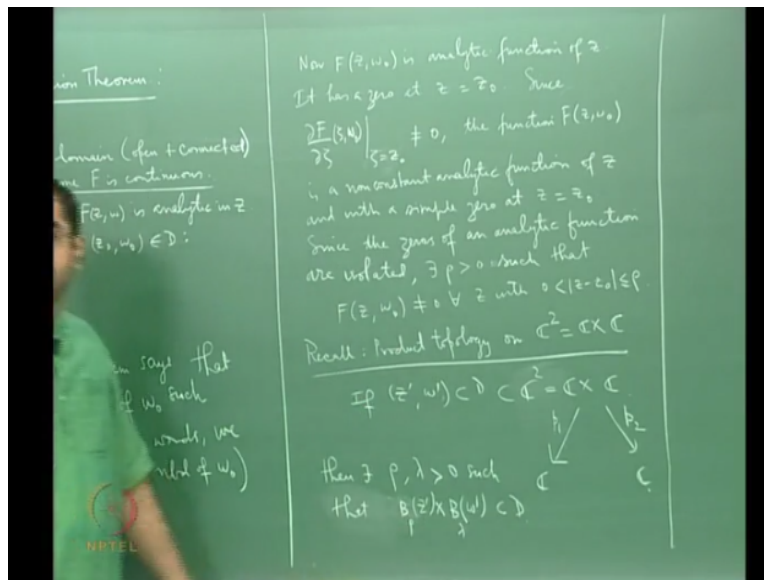 ion Theorem:
domain (open + connected)
me F is continuous.
F(z,w) is analytic in z
(z₀, w₀) ∈ D:
m says that
of w₀ such
words, we
nbd of w₀)
Now F(z, w₀) is analytic function of z
It has a zero at z = z₀. Since
∂F/∂ζ (ζ, w₀)|_{ζ=z₀} ≠ 0, the function F(z, w₀)
is a nonconstant analytic function of z
and with a simple zero at z = z₀
Since the zeros of an analytic function
are isolated, ∃ ρ > 0 such that
F(z, w₀) ≠ 0 ∀ z with 0 < |z - z₀| ≤ ρ.
Recall: Product topology on ℂ² = ℂ × ℂ
If (z', w') ⊂ D ⊂ ℂ² = ℂ × ℂ
p₁ p₂
ℂ ℂ
then ∃ ρ, λ > 0 such
that B_ρ(z') × B_λ(w') ⊂ D
NPTEL